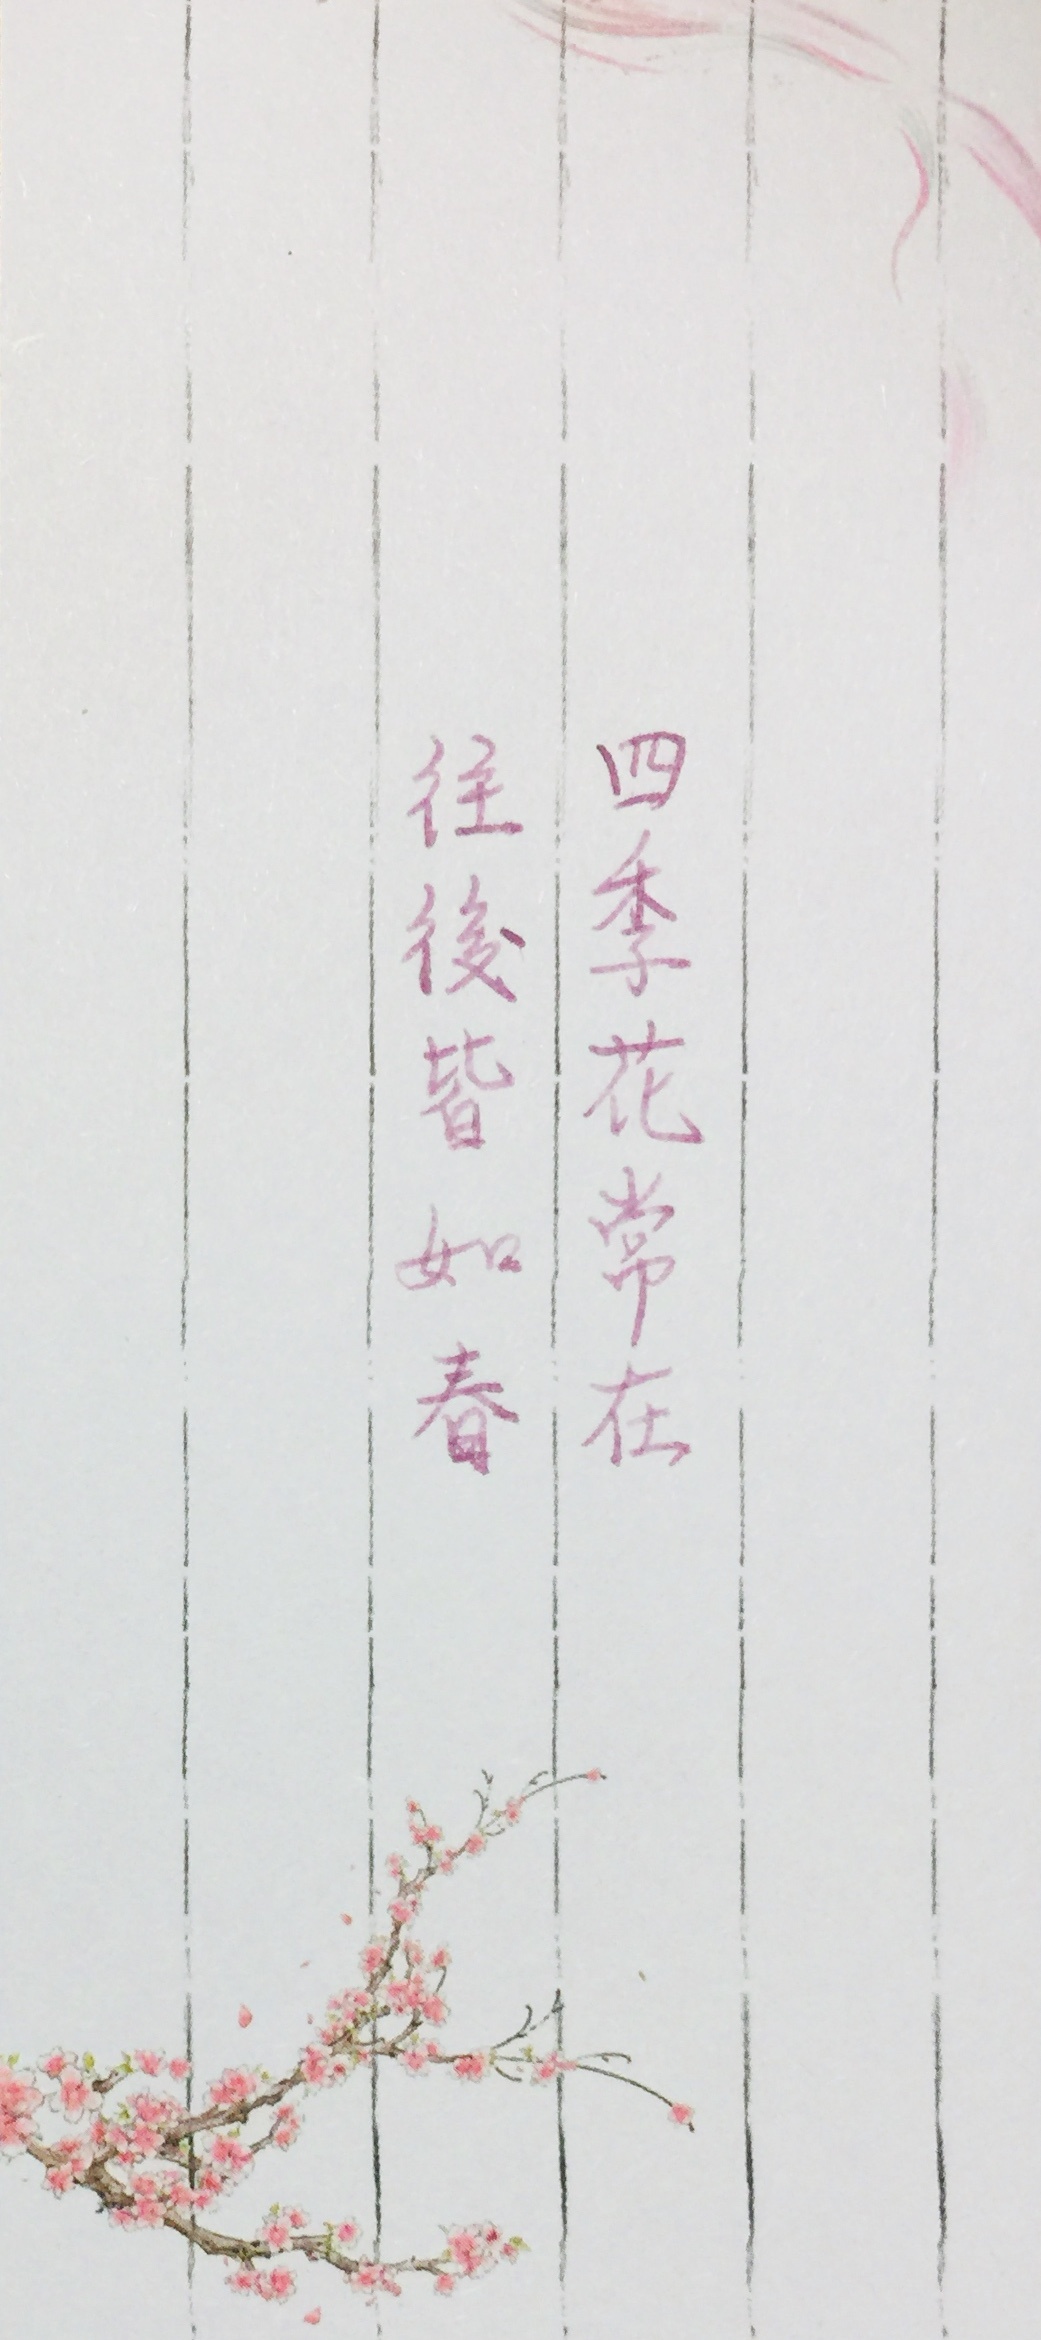 四季花常在
往後皆如春